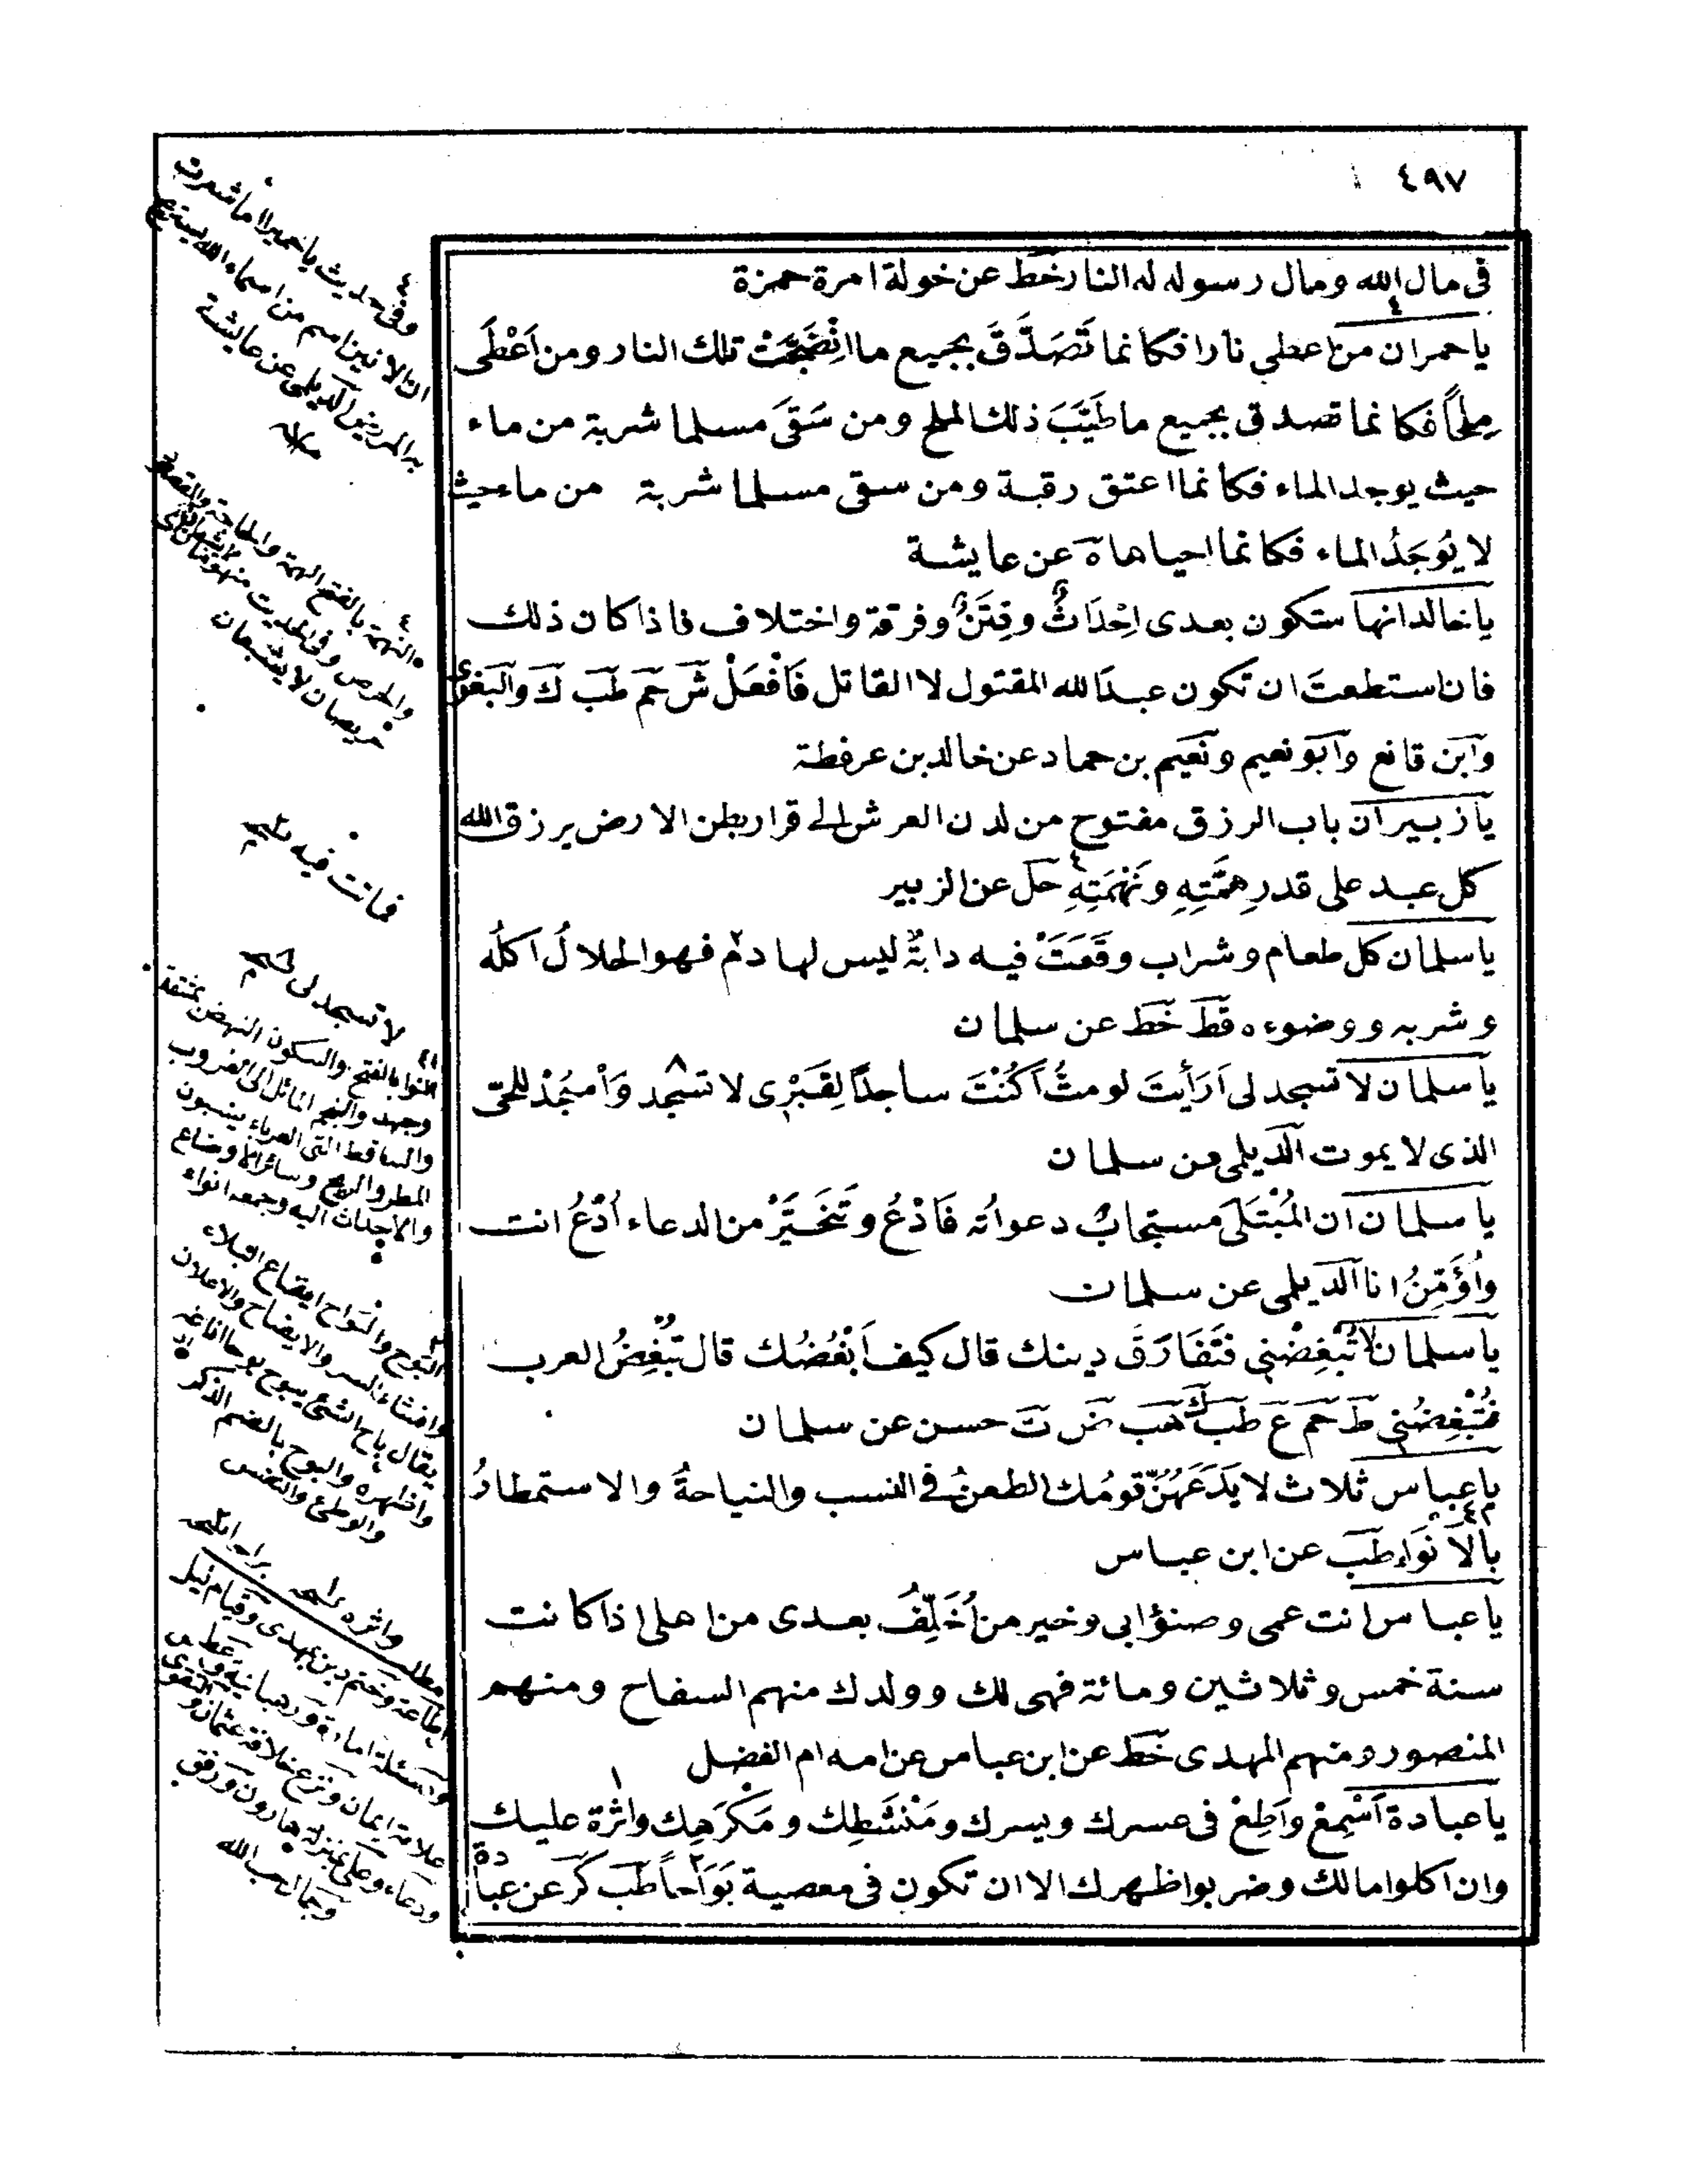 ٤٩٧
فى مال الله ومال رسوله له النار خط عن خولة امرة حمزة
يا حمران من اعطى نارا فكانما تَصَدَّقَ بجميع ما انضَجَتْ تلك النار ومن اَعْطَى
مِلحًا فكانما تصدق بجميع ما طَيَّبَ ذلك الملح ومن سَقَى مسلما شربة من ماء
حيث يوجد الماء فكانما اعتق رقبة ومن سقى مسلما شربة من ماء حيث
لا يُوجَدُ الماء فكانما احياها ه عن عايشة
يا خالد انها ستكون بعدى اِحْدَاثٌ وفِتَنٌ وفرقة واختلاف فاذا كان ذلك
فان استطعتَ ان تكون عبدَ الله المقتول لا القاتل فَافْعَلْ ش حم طب ك والبغوى
وابن قانع وابو نعيم ونعيم بن حماد عن خالد بن عرفطة
يا زبير ان باب الرزق مفتوح من لدن العرش الى قرار بطن الارض يرزق الله
كل عبد على قدر هِمَّتِهِ ونَهْمَتِهِ حل عن الزبير
يا سلمان كل طعام وشراب وقَعَتْ فيه دابةٌ ليس لها دم فهو الحلالُ اكلُه
وشربه ووضوءه قط خط عن سلمان
يا سلمان لا تسجد لى اَرَأيتَ لو متُّ اَكُنْتَ ساجدًا لِقَبْرِى لا تسجد وَاسْجُدْ للحىّ
الذى لا يموت الديلمى عن سلمان
يا سلمان ان المُبْتَلَى مستجابٌ دعواتُه فَادْعُ وتَخَيَّرْ من الدعاء اُدْعُ انت
واُؤَمِّنُ انا الديلمى عن سلمان
يا سلمان لا تُبْغِضْنِى فتَفَارَقَ دينك قال كيف اَبْغُضُك قال تُبْغِضُ العرب
فتُبْغِضُنى ط حم ع طب ك هب ض ت حسن عن سلمان
يا عباس ثلاث لا يَدَعَهُنَّ قومُك الطعنُ فى النسب والنياحةُ والاستمطارُ
بالاَنوَاءِ طب عن ابن عباس
يا عباس انت عمى وصنؤ ابى وخير من اُخَلِّفُ بعدى من اهلى اذا كانت
سنة خمس وثلاثين ومائة فهى لك وولدك منهم السفاح ومنهم
المنصور ومنهم المهدى خط عن ابن عباس عن امه ام الفضل
يا عبادة اَسْمِعْ واَطِعْ فى عسرك ويسرك ومَنْشَطِك ومَكرَهِك واثرة عليك
وان اكلوا مالك وضربوا ظهرك الا ان تكون فى معصية بَوَاحًا طب كر عن عبادة
وفى حديث يا حميرا اما شعرت
ان الانين اسم من اسماء الله يستريح
به المريض الديلمى عن عايشة
النهمة بالفتح الهمة والحاجة
والحرص وفى الحديث منهومان لا يشبعان
حريصان لا يشبعان
فماتت فيه نسخهم
لا تسجد لى نسخهم
النوا بالفتح والسكون النهض بمشقة
وجهد والنجم المائل الى الغروب
والساقط التى العرباء ينسبون
المطر والريح وسائر الاوضاع
والاحداث اليه وجمعه انواء
البوح والبواح ايقاع البلاء
وافشاء السر والايضاح والاعلان
يقال باح الشئ يبوح بوحا
واظهره والبوح بالضم الذكر
والوطئ والنفس
مطلب
اطاعة وختم دين بمهدى وقيام ليل
ومسئلة امارة ورهبانية
علامة ايمان ونزع خلافة عثمان
ودعاء وعلى بمنزلة هارون ورفق
وجمال حب الله